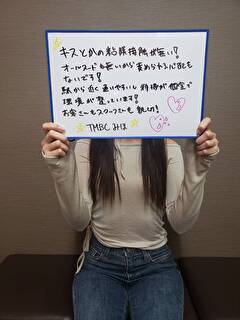 キスとかの粘膜接触が無い?
オールヌードも無いから責められることも
ないです?
駅から近く通いやすいし 待機が個室で
環境が整っています?
お客さんもスタッフさんも親切!
TMBC みほ